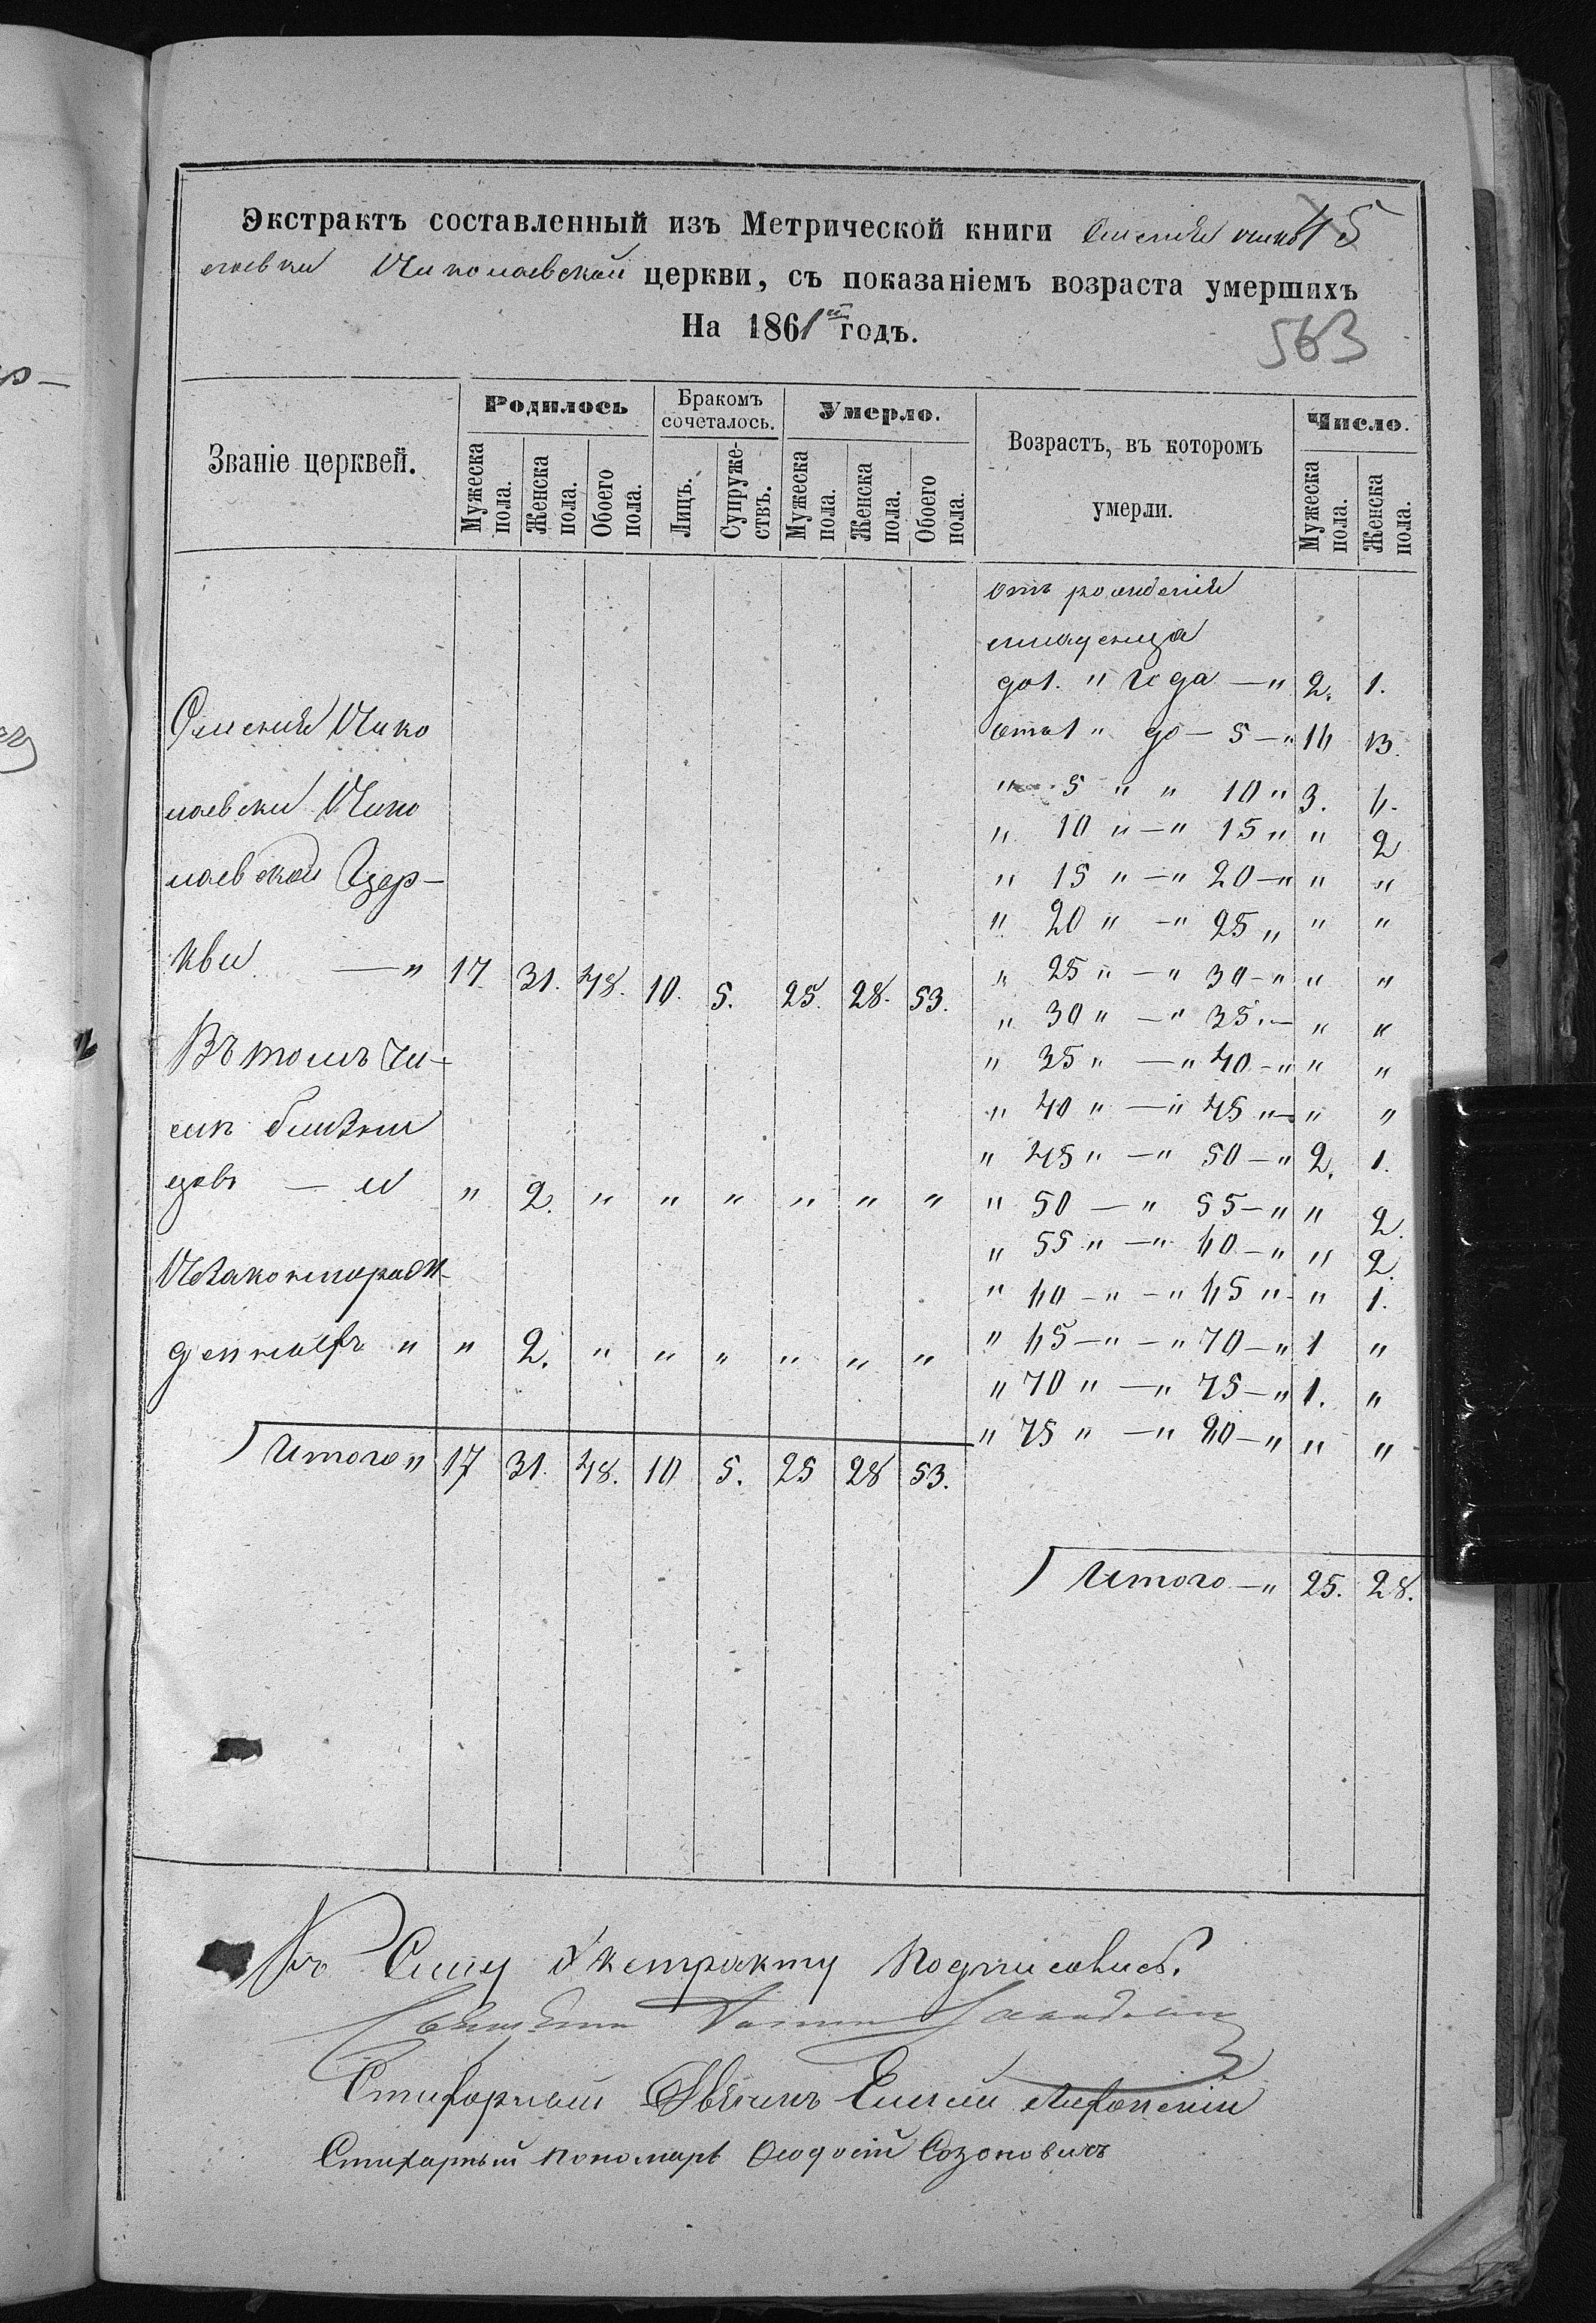 Экстрактъ составленный изъ Метрической книги селенія Нико 5
лаевки Николаевской церкви, съ показаніемъ возраста умершихъ
На 1861й годъ.
563
Званіе церквей.
Родилось
Бракомъ сочеталось.
Умерло.
Возрастъ, въ которомъ умерли.
Число.
Мужеска пола.
Женска пола.
Обоего пола.
Лицъ.
Супружествъ.
Мужеска пола.
Женска пола.
Обоего пола.
Мужеска пола.
Женска пола.
Селенія Нико
лаевки Нико
лаевской Цер-
кви — " 17. 31. 48. 10. 5. 25. 28. 53.
Въ томъ чи-
слѣ близне
цовъ — и " 2. " " " " " "
Незаконорож-
денныхъ " " 2. " " " " " "
Итого " 17 31. 48. 10 5. 25 28 53.
отъ рожденія
младенца
до 1. " года — " 2. 1.
отъ 1 " до — 5 — " 16 13.
" 5 " " 10 " 3. 6.
" 10 " — " 15 " " 2
" 15 " — " 20 — " " "
" 20 " — " 25 " " "
" 25 " — " 30 — " " "
" 30 " — " 35 " — " "
" 35 " — " 40 — " " "
" 40 " — " 45 " — " "
" 45 " — " 50 — " 2. 1.
" 50 — " 55 — " " 2.
" 55 " — " 60 — " " 2.
" 60 — " — " 65 " — " 1.
" 65 — " — " 70 — " 1 "
" 70 " — " 75 — " 1. "
" 75 " — " 80 — " " "
Итого — " 25. 28.
Къ Сему Экстракту Подписались.
Священникъ
Стихарный Дьячекъ Елисей
Стихарный пономарь Ѳеодосій Созоновичъ